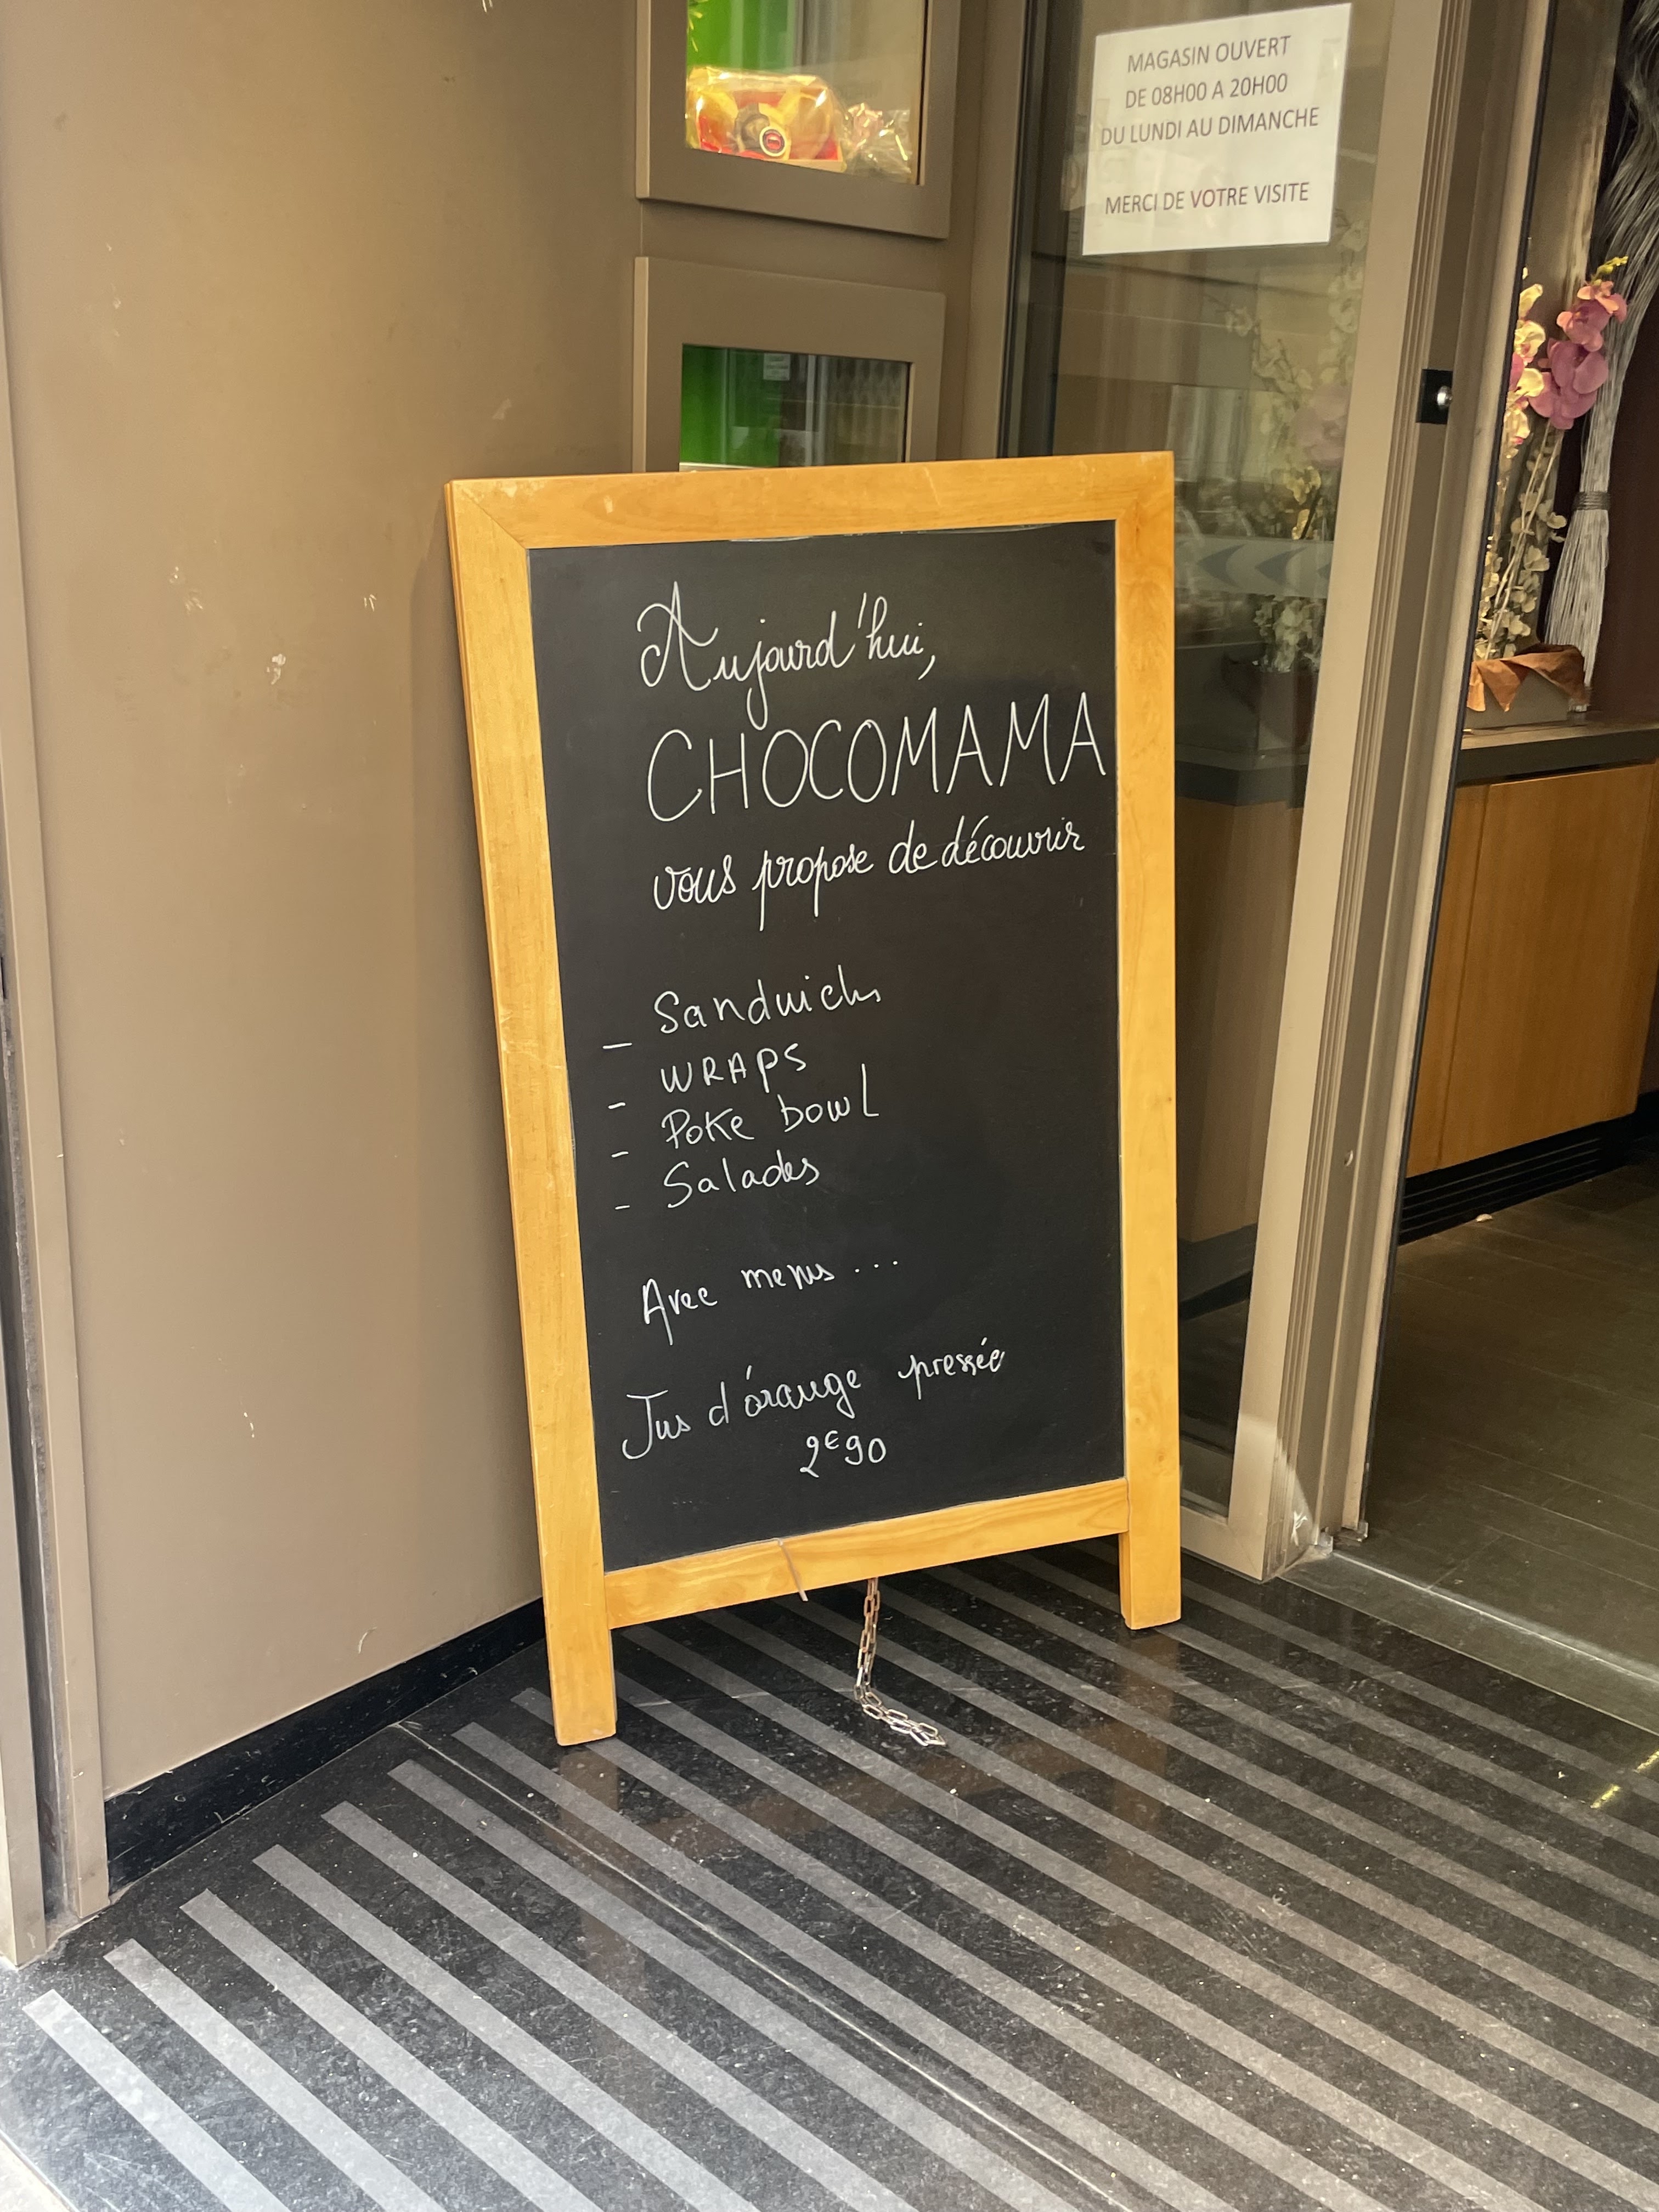 MAGASIN OUVERT
DE 08H00 A 20H00
DU LUNDI AU DIMANCHE
MERCI DE VOTRE VISITE
Aujourd'hui,
CHOCOMAMA
vous propose de découvrir
- Sandwichs
- WRAPS
- Poke bowl
- Salades
Avec menus ...
Jus d'orange pressée
2€90